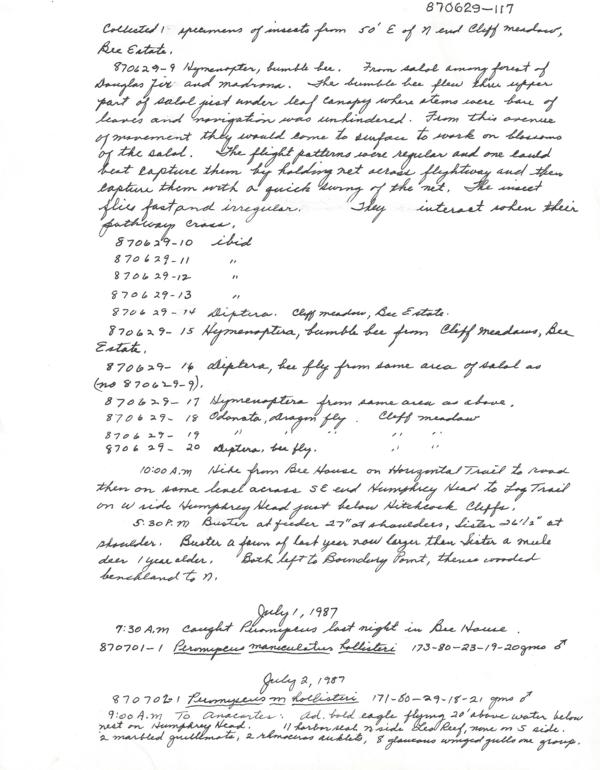 870629-117
Collected 1 specimens of insects from 50' E of N end Cliff meadow,
Bee Estate.
870629-9 Hymenopter, bumble bee. From salal among forest of
Douglas Fir and madrona. The bumble bee flew thru upper
part of salal just under leaf canopy where stems were bare of
leaves and navigation was unhindered. From this avenue
of movement they would come to surface to work on blossoms
of the salal. The flight patterns were regular and one could
best capture them by holding net across flightway and then
capture them with a quick swing of the net. The insect
flies fast and irregular. They interact when their
pathways cross.
870629-10 ibid
870629-11 "
870629-12 "
870629-13 "
870629-14 Diptera. Cliff meadow, Bee Estate.
870629-15 Hymenoptera, bumble bee from Cliff meadows, Bee
Estate.
870629-16 Diptera, bee fly from same area of salal as
(no 870629-9).
870629-17 Hymenoptera from same area as above.
870629-18 Odonata, dragon fly. Cliff meadow
870629-19 " " " " "
870629-20 Diptera, bee fly. " "
10:00 A.M Hike from Bee House on Horizontal Trail to road
then on same level across SE end Humphrey Head to Log Trail
on W side Humphrey Head just below Hitchcock Cliffs.
5:30 P.M Buster at feeder 27" at shoulders, Sister 26 1/2" at
shoulder. Buster a fawn of last year now larger than Sister a mule
deer 1 year older. Both left to Boundary Point, thence wooded
benchland to N.
July 1, 1987
7:30 A.M caught Peromyscus last night in Bee House.
870701-1 Peromyscus maniculatus hollisteri 173-80-23-19-20gms ♂
July 2, 1987
870702-1 Peromyscus m hollisteri 171-80-29-18-21 gms ♂
9:00 A.M To Anacortes: Ad. bald eagle flying 20' above water below
nest on Humphrey Head. 11 harbor seal N side Leo Reef, none on S side.
2 marbled guillemots, 2 rhinoceros auklets, 8 glaucous winged gulls one group.